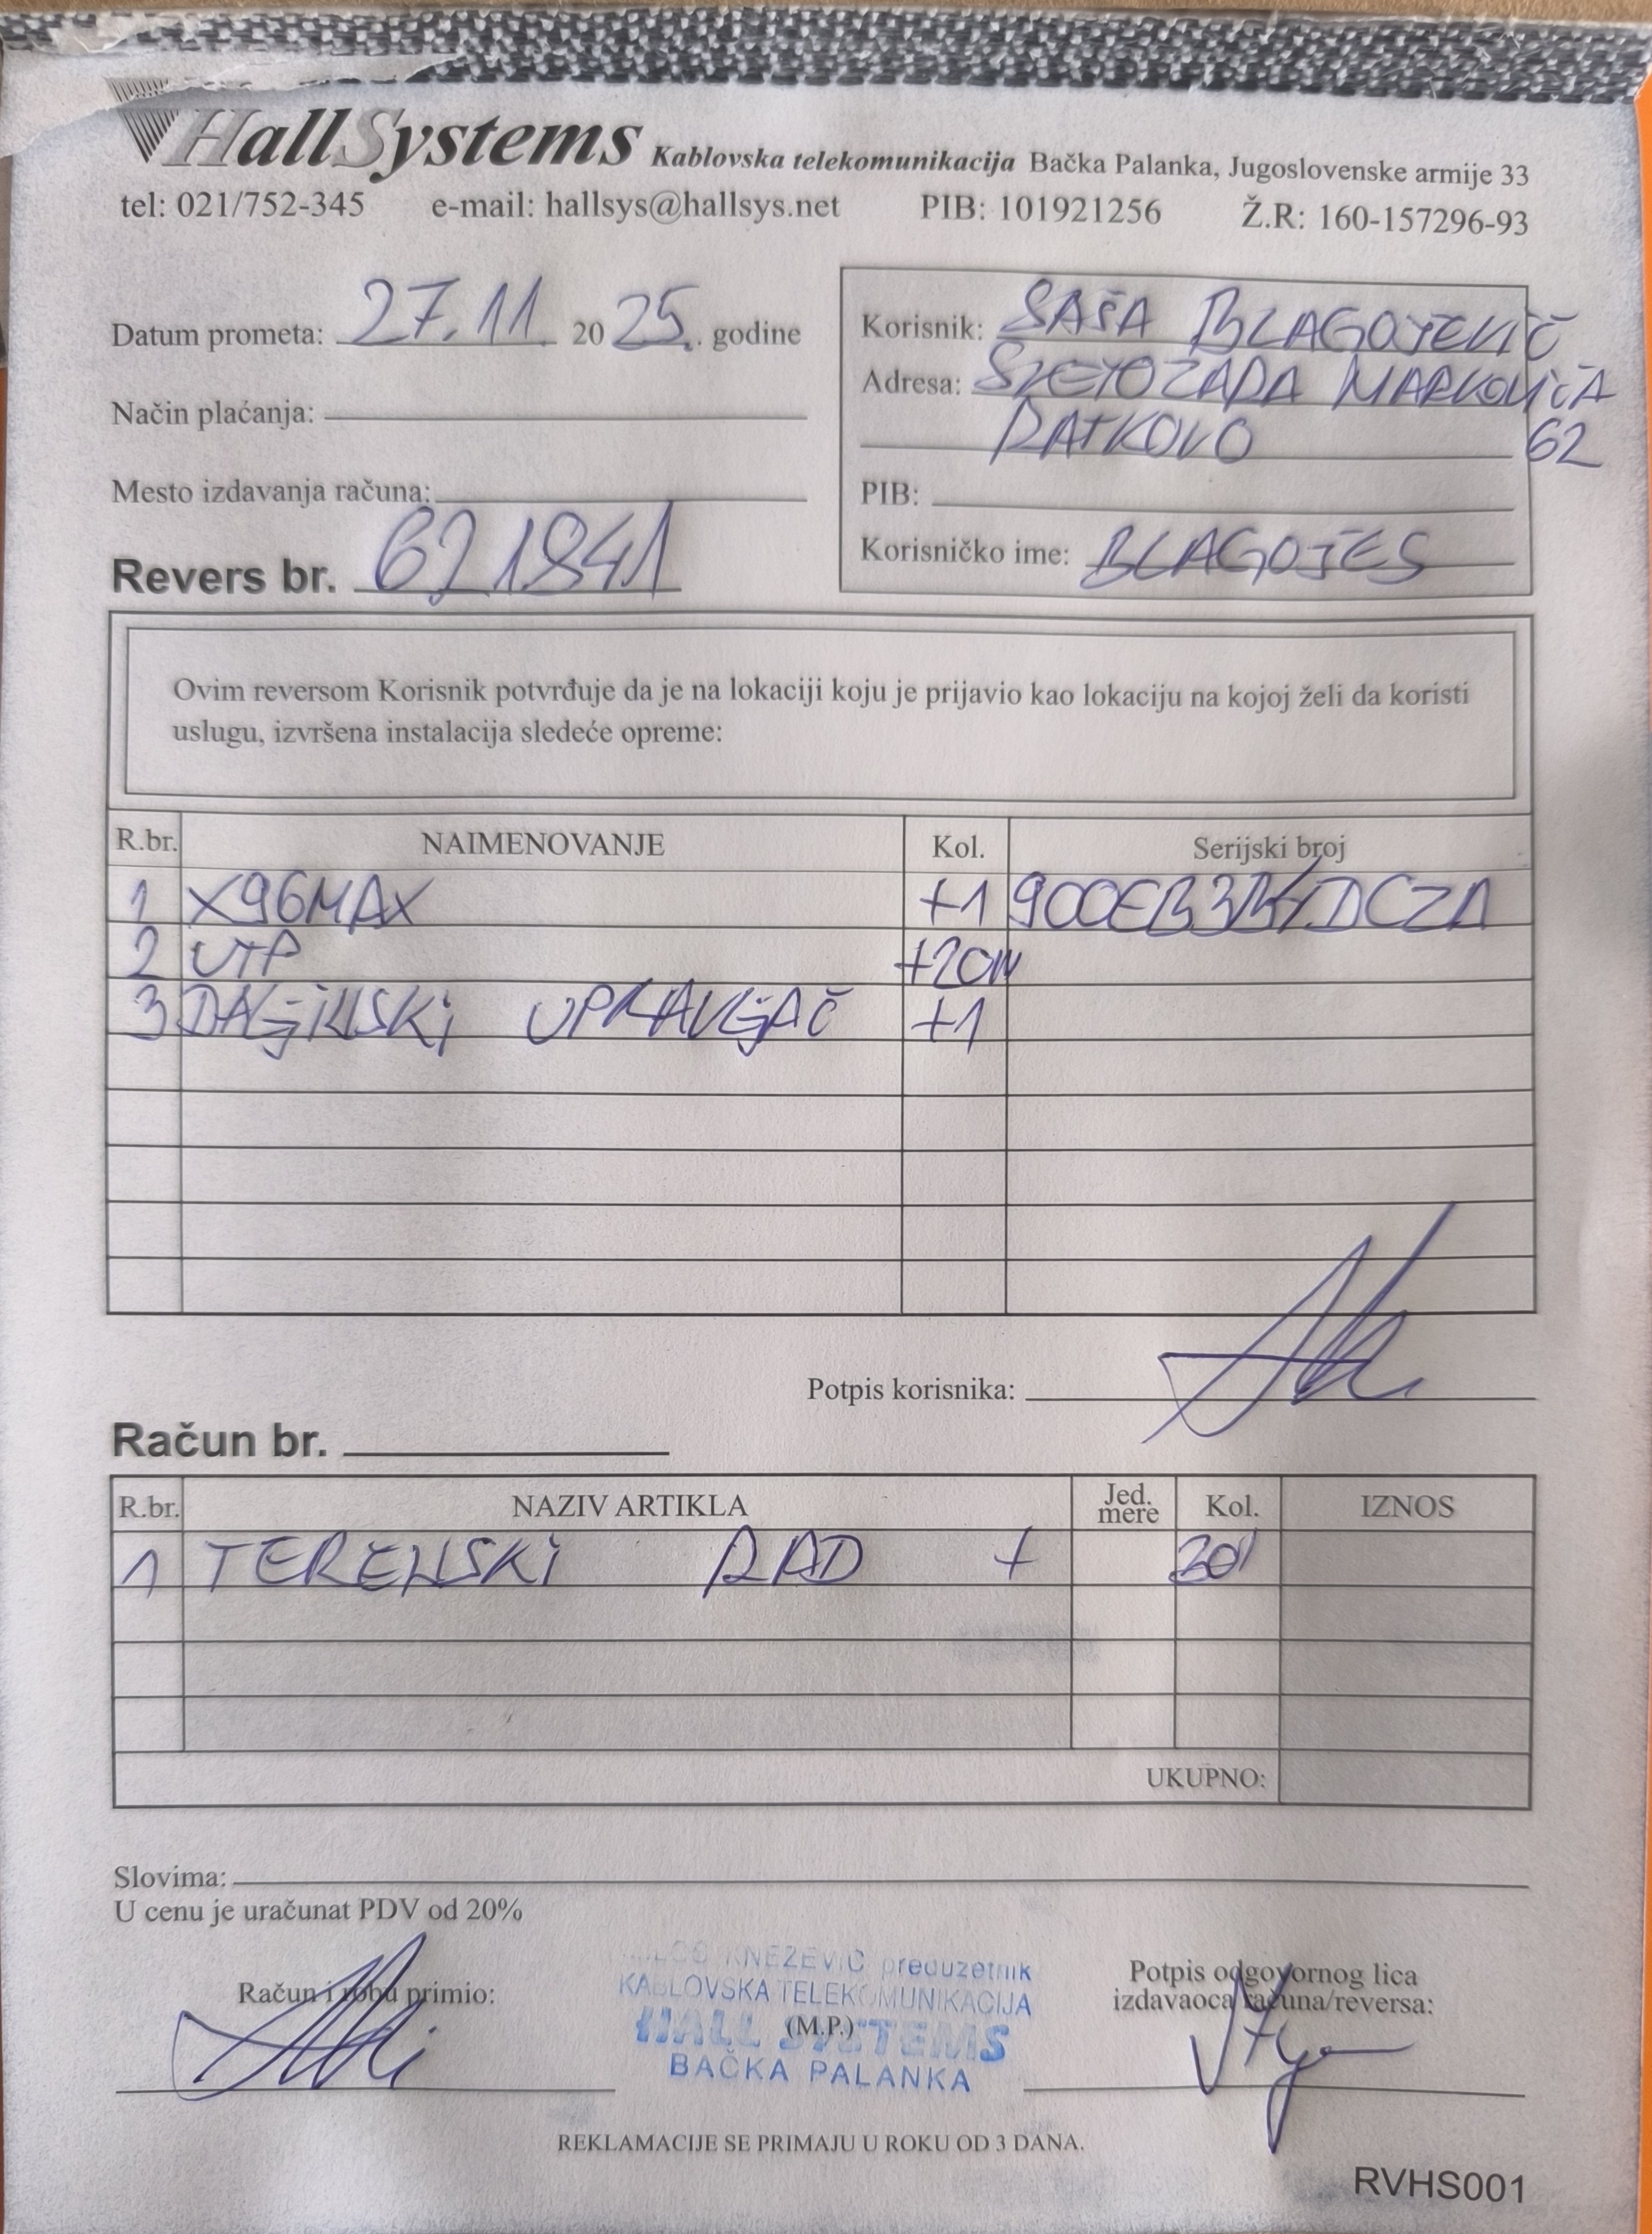 HallSystems Kablovska telekomunikacija Bačka Palanka, Jugoslovenske armije 33
tel: 021/752-345 e-mail: hallsys@hallsys.net PIB: 101921256 Ž.R: 160-157296-93
Datum prometa: 27.11. 2025. godine
Način plaćanja:
Mesto izdavanja računa:
Revers br. 621841
Korisnik: SAŠA BLAGOJEVIĆ
Adresa: SVETOZARA MARKOVIĆA
RATKOVO 62
PIB:
Korisničko ime: BLAGOJES
Ovim reversom Korisnik potvrđuje da je na lokaciji koju je prijavio kao lokaciju na kojoj želi da koristi
uslugu, izvršena instalacija sledeće opreme:
R.br. NAIMENOVANJE Kol. Serijski broj
1 X96MAX +1
2 UTP +20m
3 DALJINSKI UPRAVLJAČ +1
Potpis korisnika:
Račun br.
R.br. NAZIV ARTIKLA Jed. mere Kol. IZNOS
1 TERENSKI RAD + 30'
UKUPNO:
Slovima:
U cenu je uračunat PDV od 20%
Račun i robu primio:
KNEZEVIC preduzetnik
KABLOVSKA TELEKOMUNIKACIJA
(M.P.)
HALL SYSTEMS
BAČKA PALANKA
Potpis odgovornog lica
izdavaoca računa/reversa:
REKLAMACIJE SE PRIMAJU U ROKU OD 3 DANA.
RVHS001